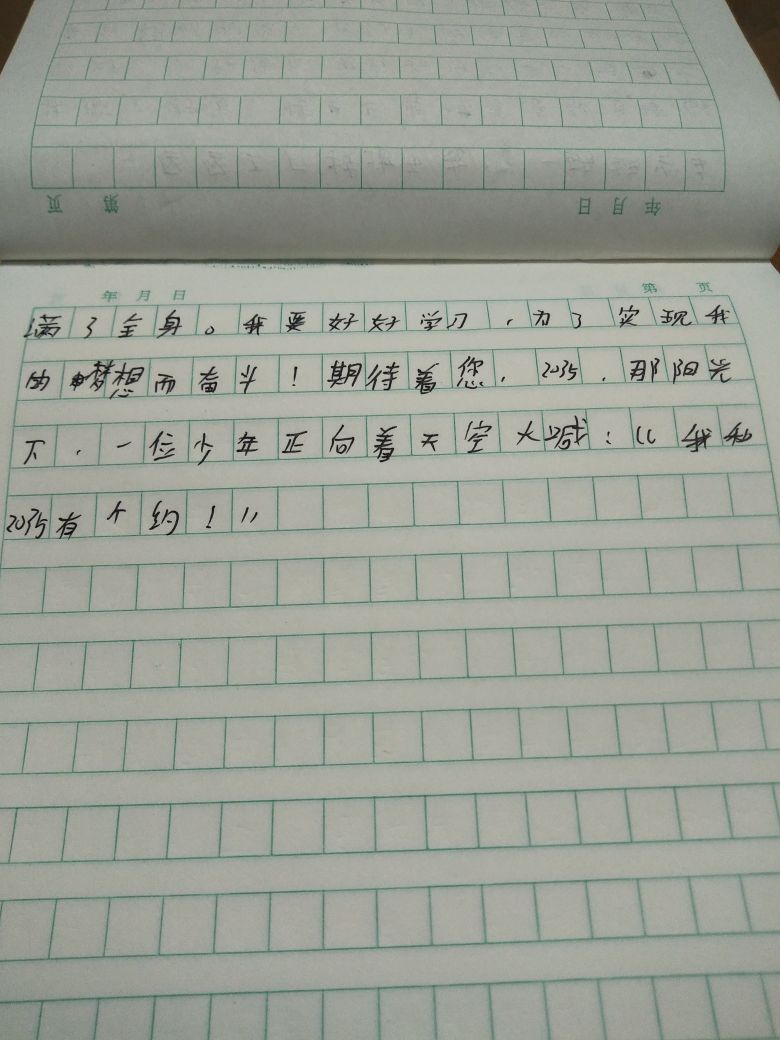 页 第 日 月 年
年 月 日 第 页
满了全身。我要好好学习，为了实现我
的梦想而奋斗！期待着您，2035，那阳光
下，一位少年正向着天空大喊：“我和
2035有个约！”